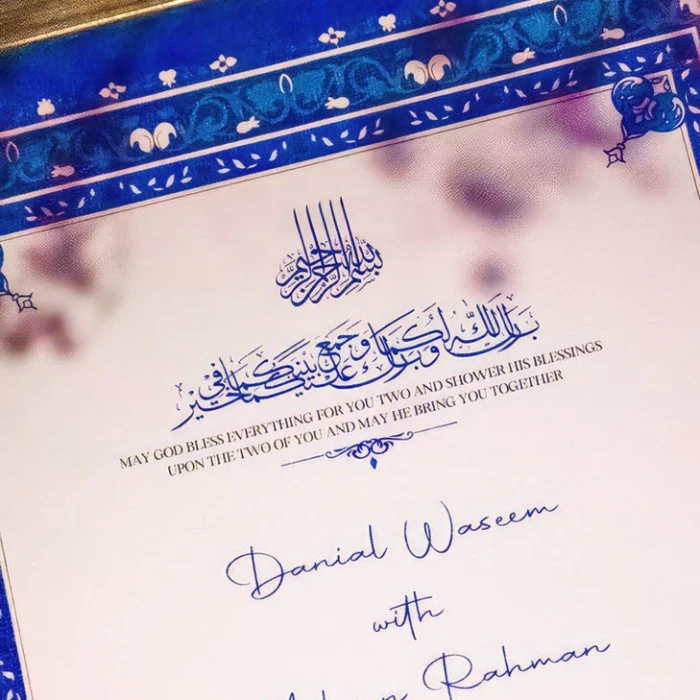 بسم الله الرحمن الرحيم
بارك الله لكما وبارك عليكما وجمع بينكما في خير
MAY GOD BLESS EVERYTHING FOR YOU TWO AND SHOWER HIS BLESSINGS
UPON THE TWO OF YOU AND MAY HE BRING YOU TOGETHER
Danial Waseem
with
Rahman